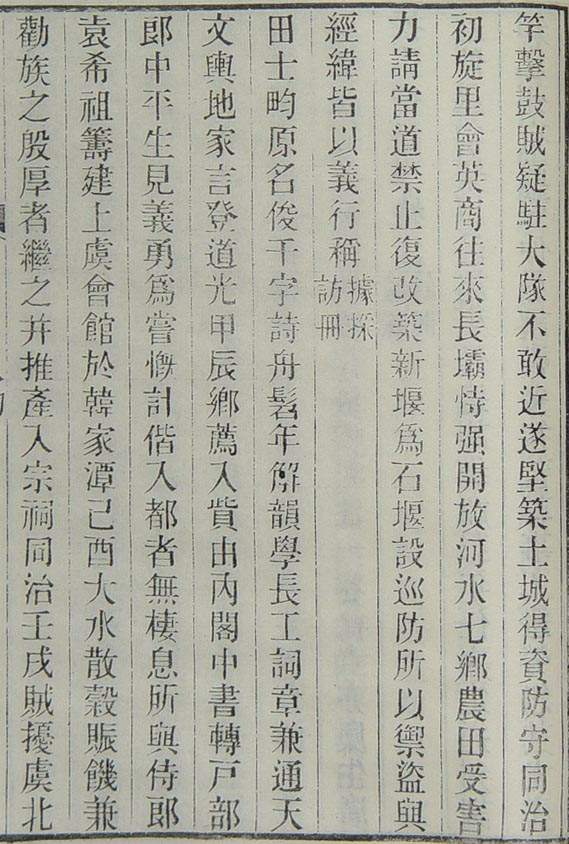 竿擊鼓賊疑駐大隊不敢近遂堅築土城得資防守同治
初旋里會英商往來長壩恃强開放河水七鄉農田受害
力請當道禁止復改築新堰爲石堰設巡防所以禦盜與
經緯皆以義行稱據採訪冊
田士畇原名俊千字詩舟髫年解韻學長工詞章兼通天
文輿地家言登道光甲辰鄉薦入貲由內閣中書轉戸部
郎中平生見義勇爲嘗慨計偕入都者無棲息所與侍郎
袁希祖籌建上虞會館於韓家潭己酉大水散穀賑饑兼
勸族之殷厚者繼之并推產入宗祠同治壬戌賊擾虞北